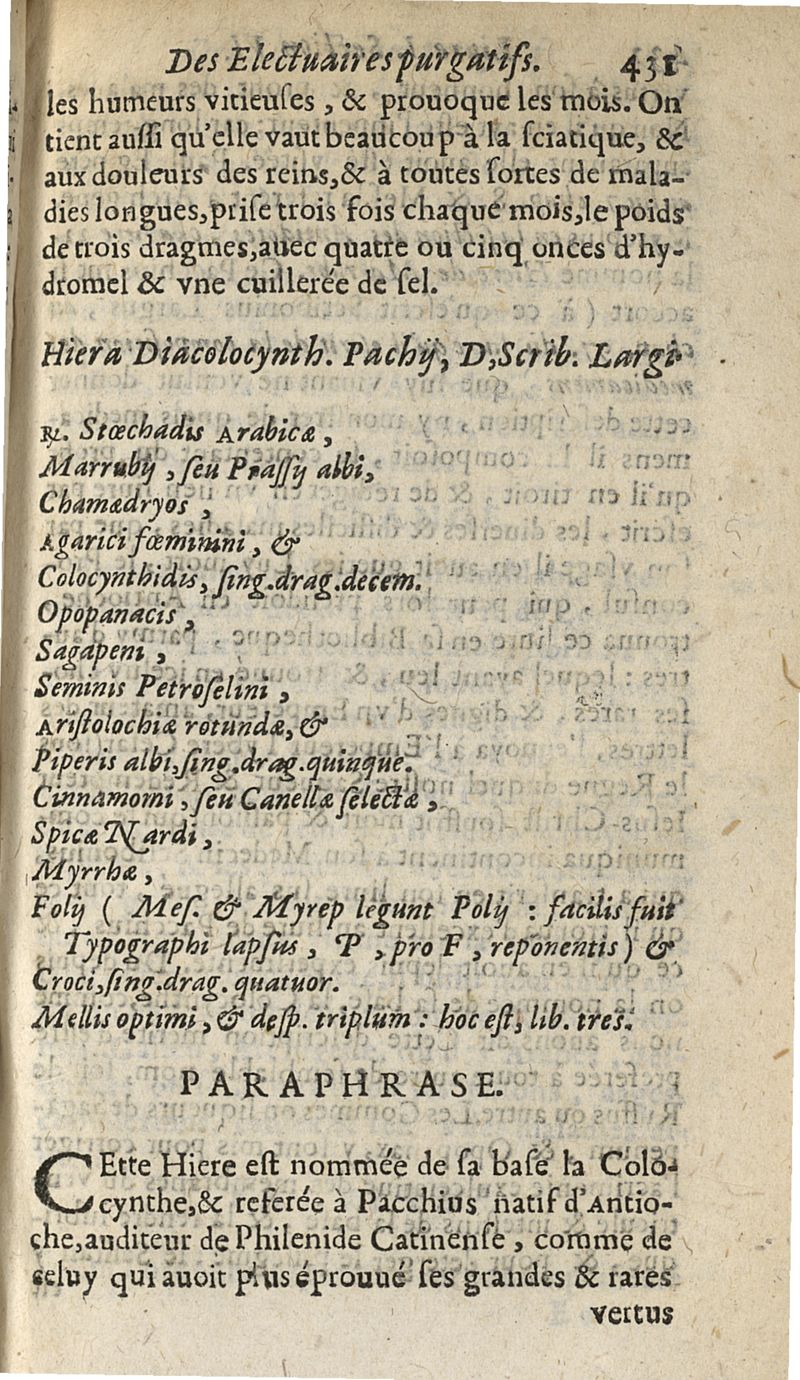 Des Electuaires purgatifs. 431
les humeurs vitieuſes, & prouoque les mois. On
tient auſſi qu'elle vaut beaucoup à la ſciatique, &
aux douleurs des reins, & à toutes ſortes de mala-
dies longues, priſe trois fois chaque mois, le poids
de trois dragmes, auec quatre ou cinq onces d'hy-
dromel & vne cuillerée de ſel.
Hiera Diacolocynth. Pachij, D, Scrib. Largi.
℞. Stœchadis Arabicæ,
Marrubij, ſeu Praſſij albi,
Chamædryos,
Agarici fœminini, &
Colocynthidis, ſing. drag. decem.
Opopanacis,
Sagapeni,
Seminis Petroſelini,
Ariſtolochiæ rotundæ, &
Piperis albi, ſing. drag. quinque.
Cinnamomi, ſeu Canellæ ſelectæ,
Spicæ Nardi,
Myrrhæ,
Folij ( Meſ. & Myrep legunt Polij : facilis fuit
Typographi lapſus, P, pro F, reponentis) &
Croci, ſing. drag. quatuor.
Mellis optimi, & deſp. triplum : hoc eſt, lib. tres.
PARAPHRASE.
CEtte Hiere eſt nommée de ſa baſe la Colo-
cynthe, & referée à Pacchius natif d'Antio-
che, auditeur de Philenide Catinenſe, comme de
celuy qui auoit plus éprouué ſes grandes & rares
vertus